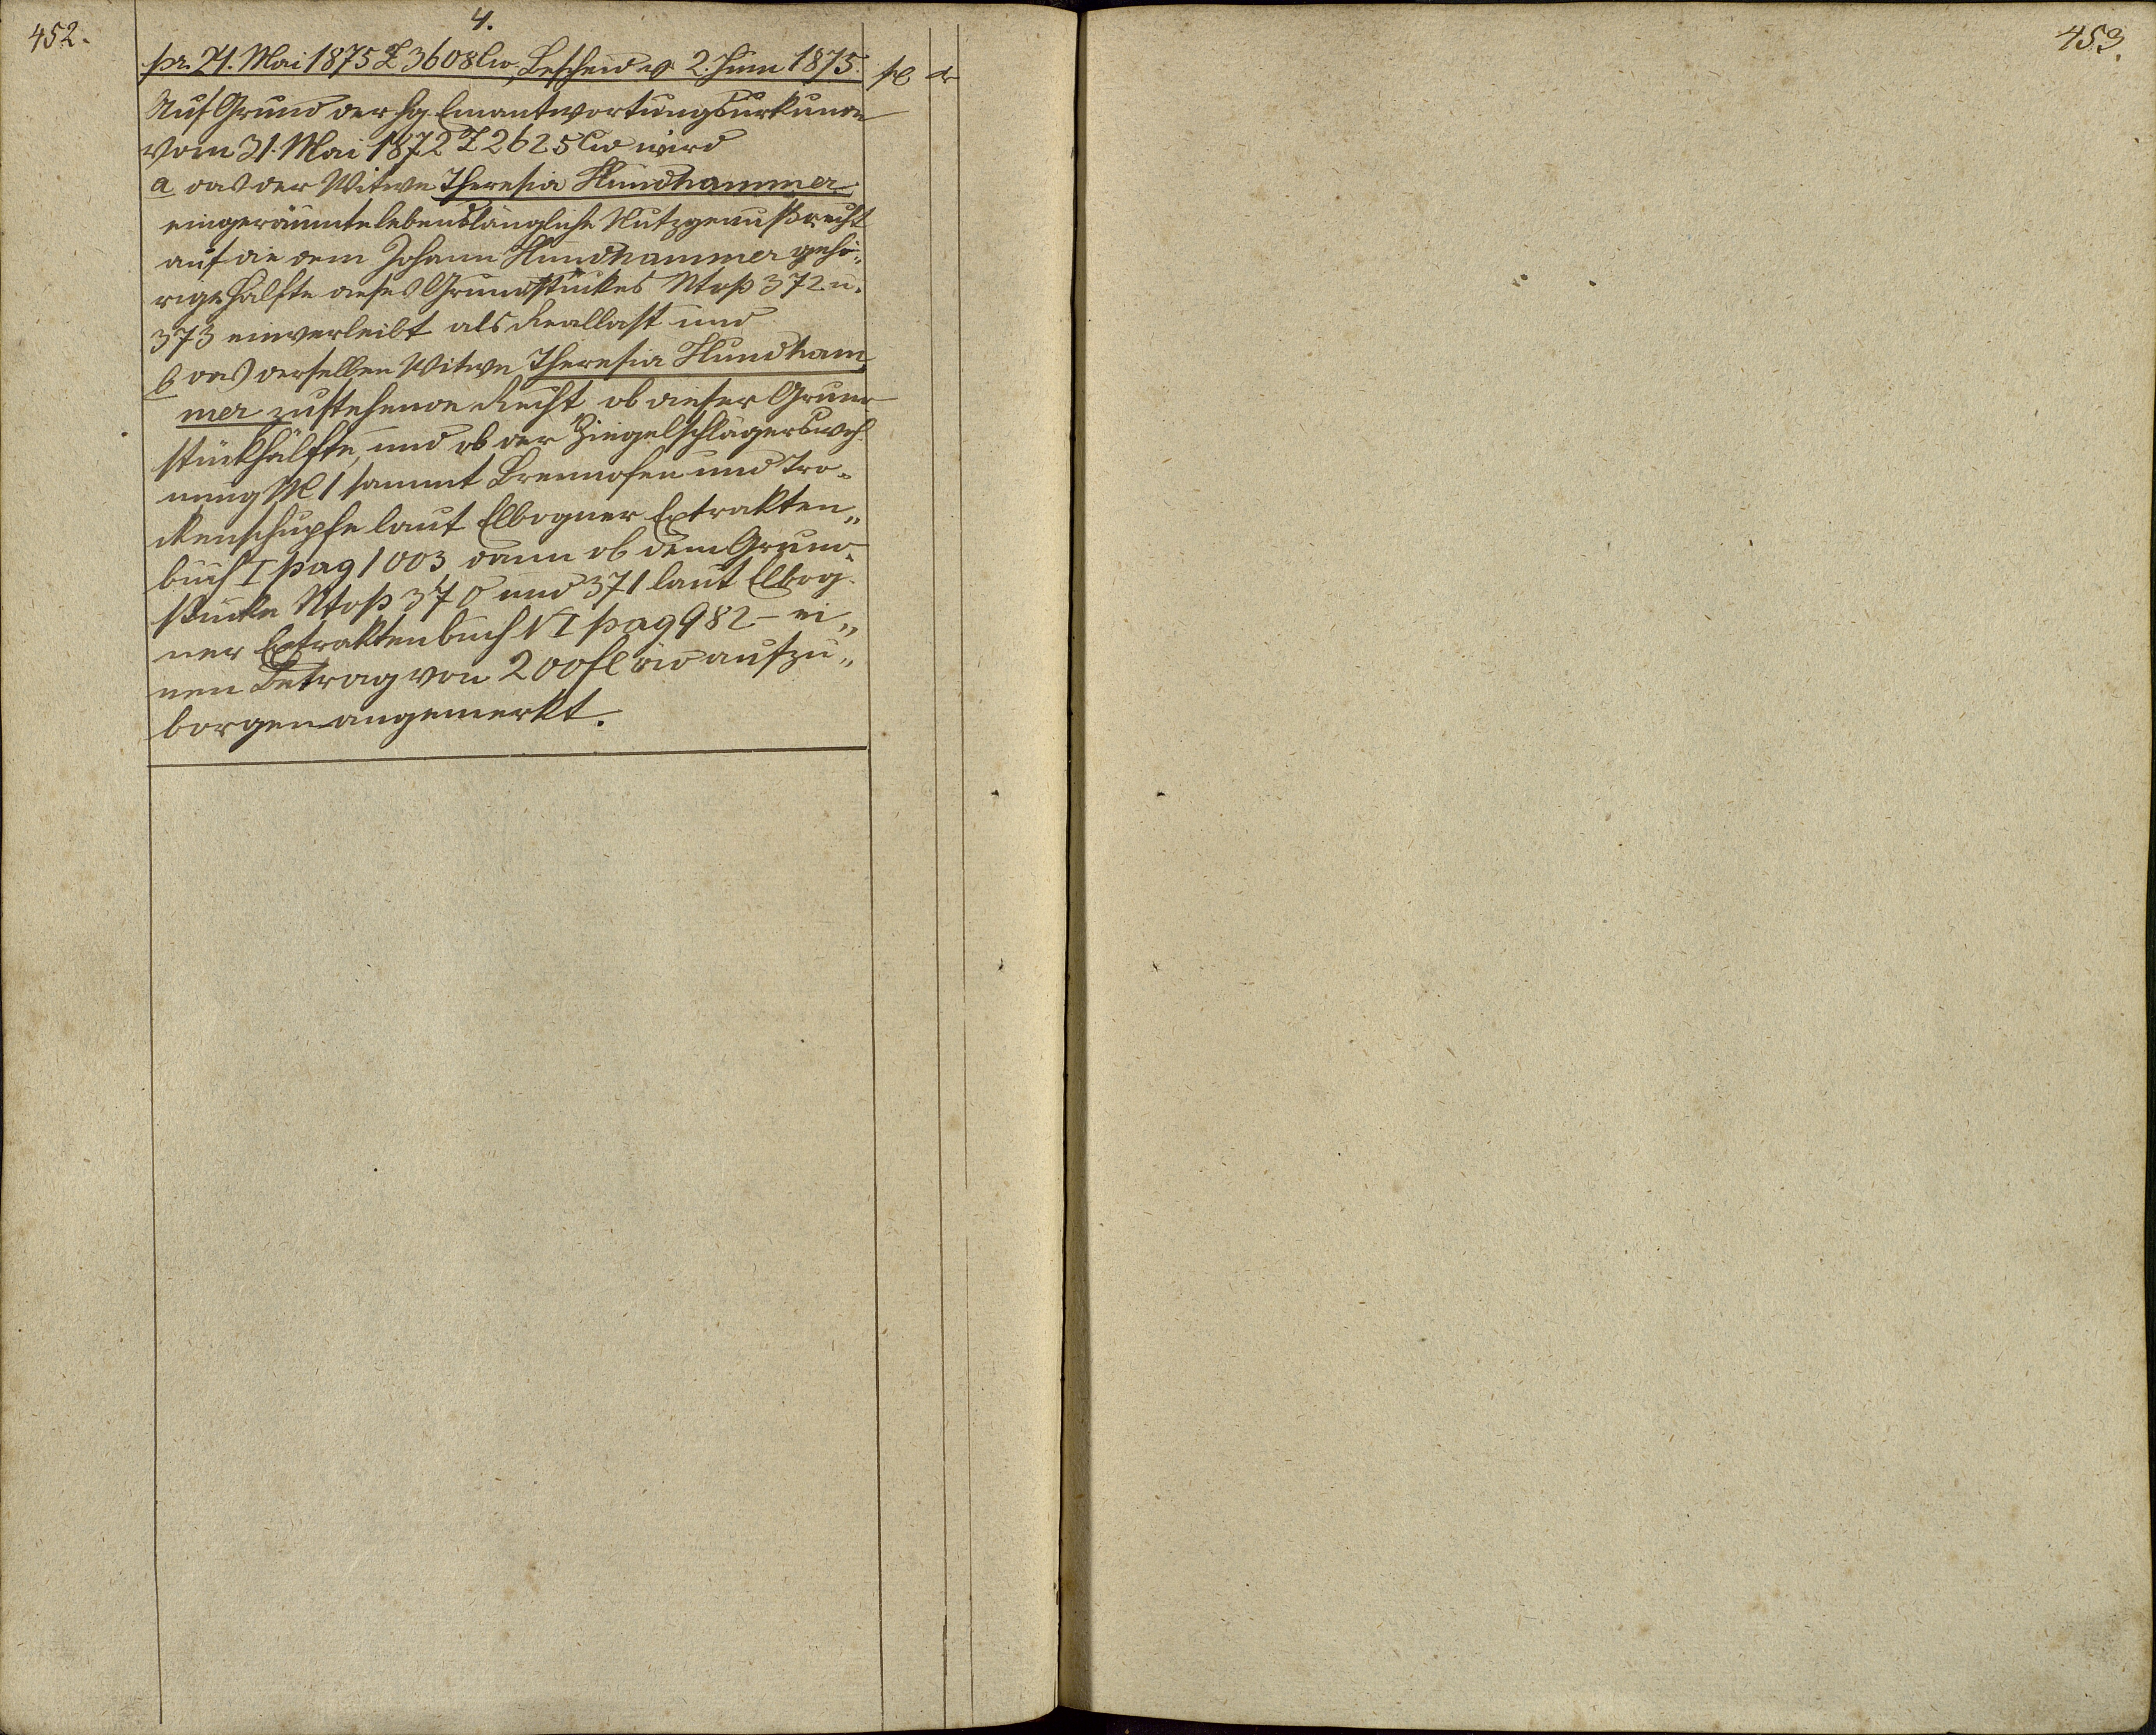 452.
4.
pr. 21. Mai 1875 Z 3608 Civ, Bescheid 2. Juni 1875.
fl kr
Auf Grund der hg. Einantwortungsurkunde
vom 31. Mai 1872 Z 2625 Civ wird
a das der Witwe Theresia Hundhammer
eingeräumte lebenslängliche Nutzgenußrecht
auf die dem Johann Hundhammer gehö-
rige Hälfte dieses Grundstückes Ntop 372 u.
373 einverleibt als Reallast und
b das derselben Witwe Theresia Hundham„
mer zustehende Recht ob dieser Grund
stückhälfte, und ob der Ziegelschlägerswoh
nung N 1 sammt Brennofen und Tro-
ckenschupfe laut Elbogner Extrakten„
buch I pag 1003 dann ob dem Grund-
stücke Ntop 370 und 371 laut Elbog-
ner Extraktenbuch VI pag 982 - ei„
nen Betrag von 200 fl öw aufzu„
borgen angemerkt.
453.